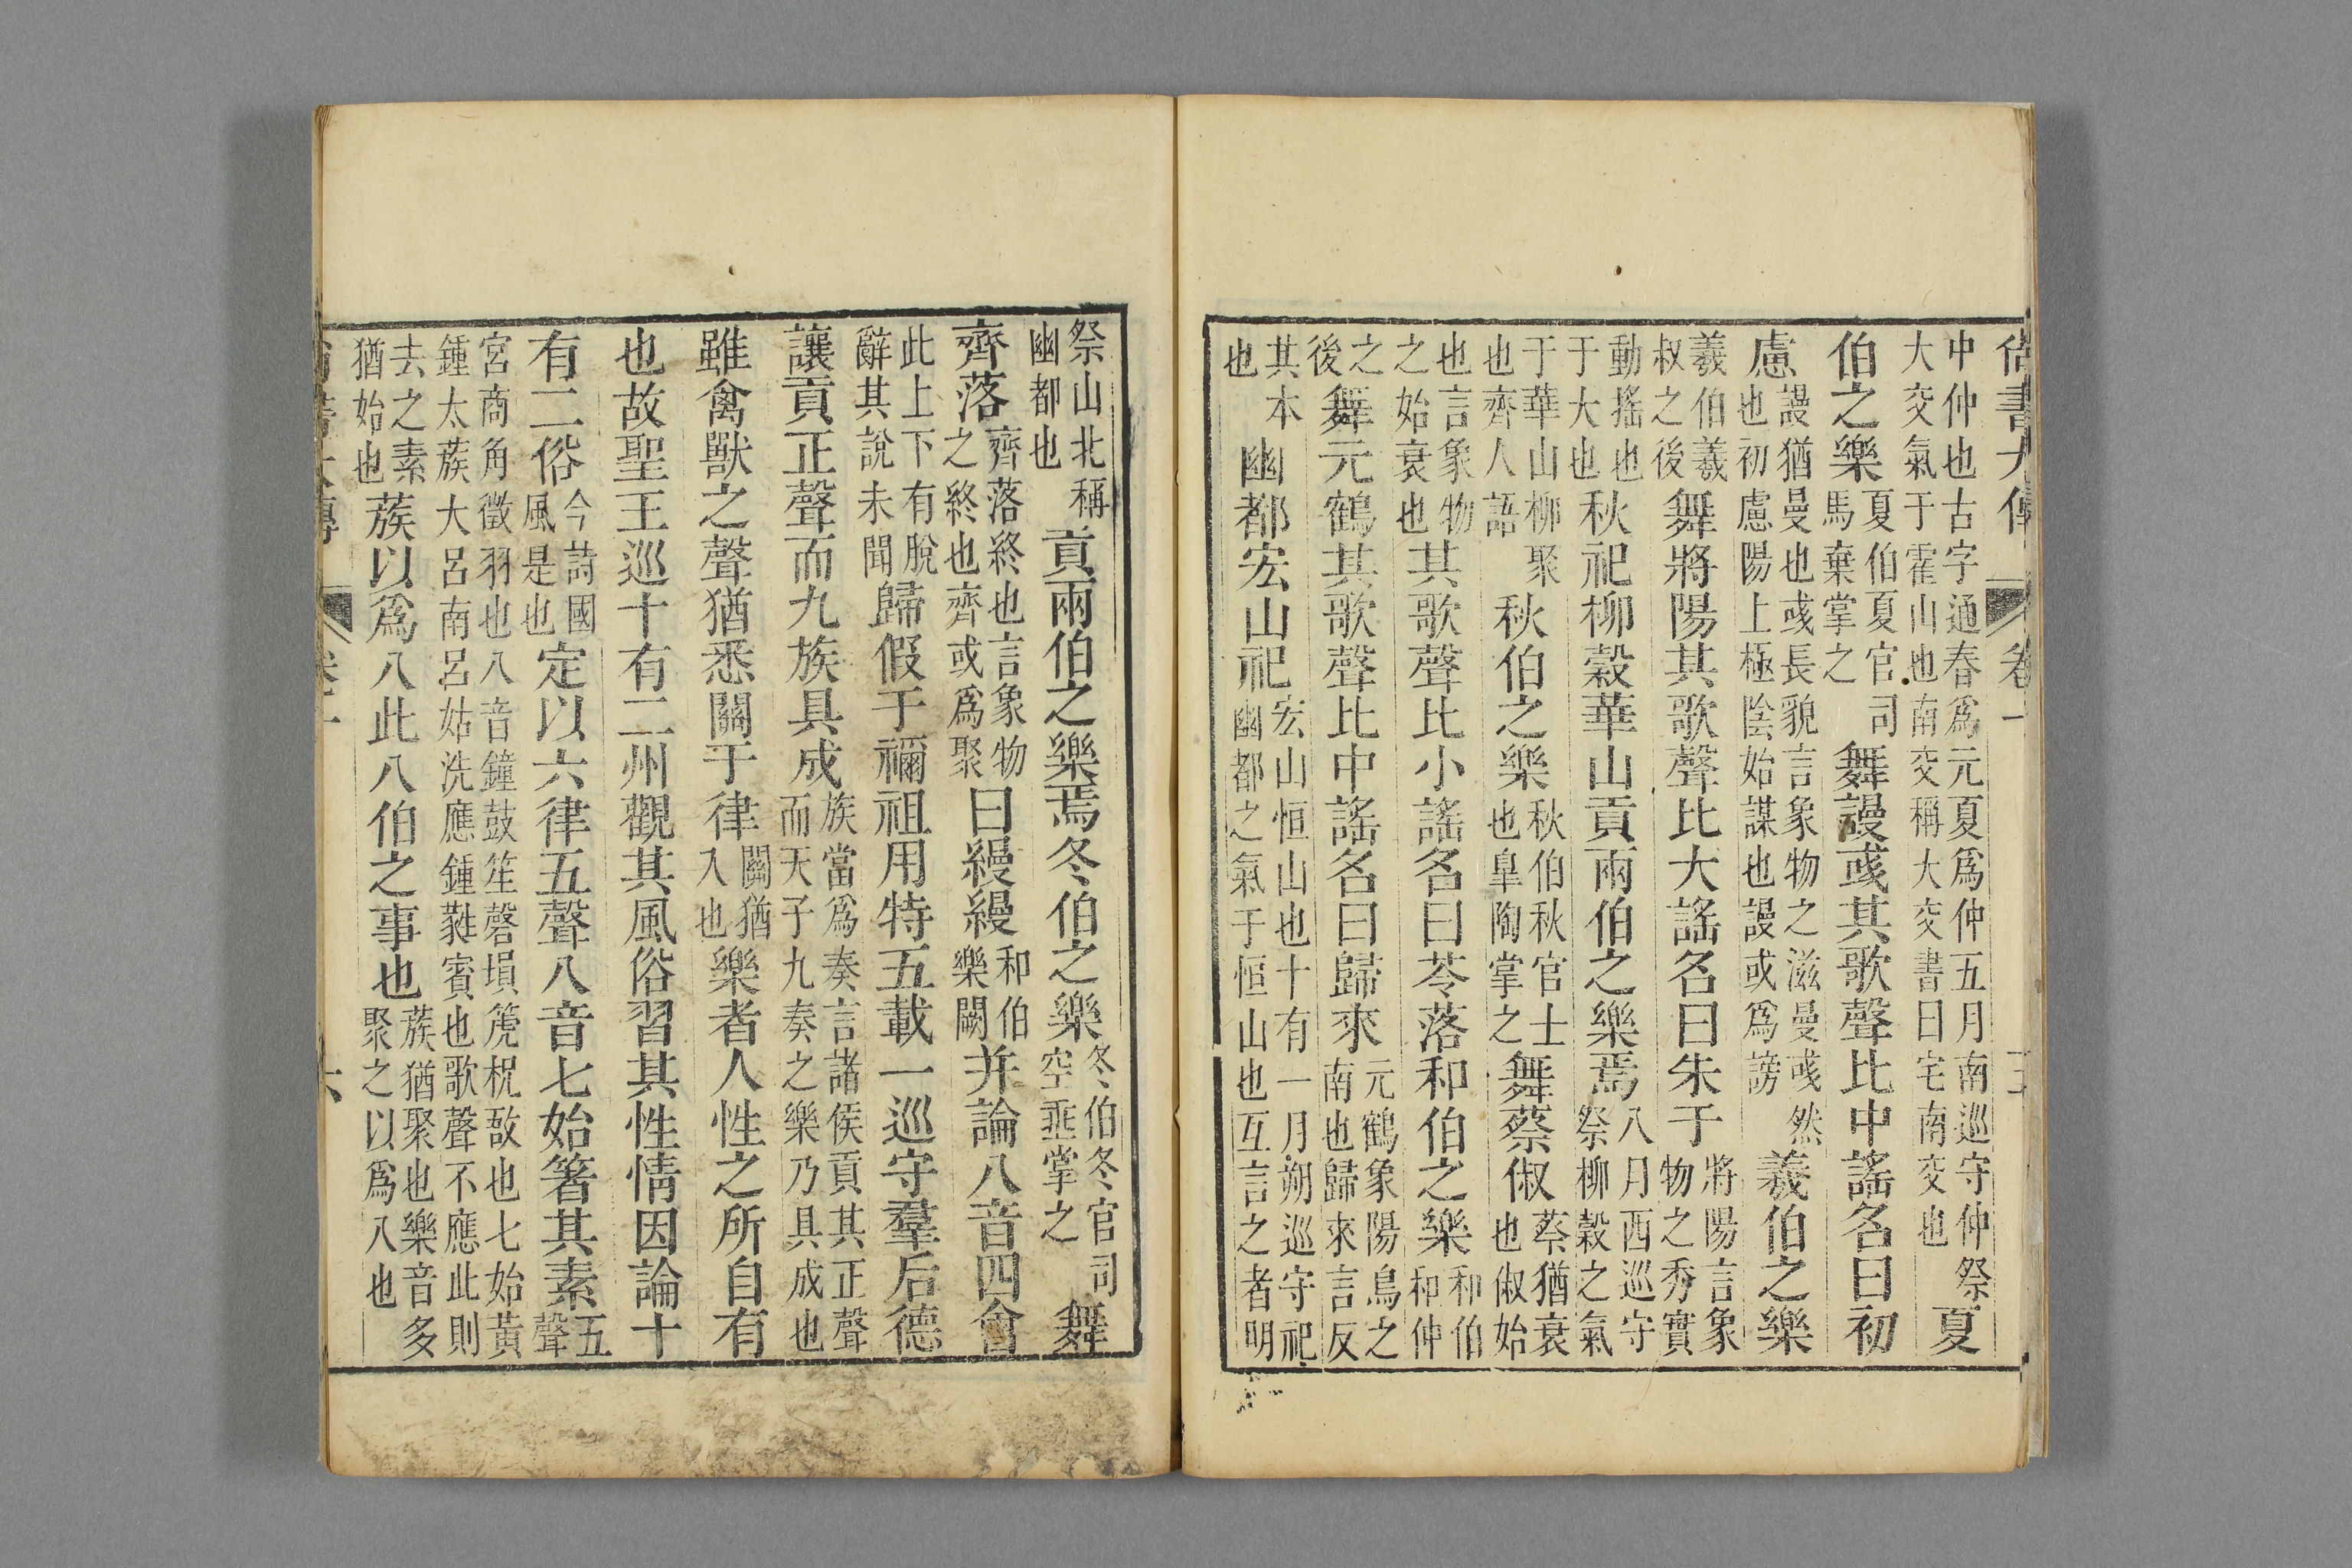 尚書大傳 卷一
中仲也古字通春爲元夏爲仲五月南巡守仲祭
大交氣于霍山也南交稱大交書曰宅南交也 夏
伯之樂 夏伯夏官司
馬棄掌之 舞謾彧其歌聲比中謠名曰初
慮 謾猶曼也彧長貌言象物之滋曼彧然
也初慮陽上極陰始謀也謾或爲謗 羲伯之樂
羲伯羲
叔之後 舞將陽其歌聲比大謠名曰朱于 將陽言象
物之秀實
動搖也
于大也 秋祀柳穀華山貢兩伯之樂焉 八月西巡守
祭柳穀之氣
于華山柳聚
也齊人語 秋伯之樂 秋伯秋官士
也皐陶掌之 舞蔡俶 蔡猶衰
也俶始
也言象物
之始衰也 其歌聲比小謠名曰苓落和伯之樂 和伯
和仲
之
後 舞元鶴其歌聲比中謠名曰歸來 元鶴象陽鳥之
南也歸來言反
其本
也 幽都宏山祀 宏山恒山也十有一月朔巡守祀
幽都之氣于恒山也互言之者明
祭山北稱
幽都也 貢兩伯之樂焉冬伯之樂 冬伯冬官司
空垂掌之 舞
齊落 齊落終也言象物
之終也齊或爲聚 曰縵縵 和伯
樂闕 并論八音四會
此上下有脫
辭其說未聞 歸假于禰祖用特五載一巡守羣后德
讓貢正聲而九族具成 族當爲奏言諸侯貢其正聲
而天子九奏之樂乃具成也
雖禽獸之聲猶悉關于律 關猶
入也 樂者人性之所自有
也故聖王巡十有二州觀其風俗習其性情因論十
有二俗 今詩國
風是也 定以六律五聲八音七始箸其素 五
聲
宮商角徵羽也八音鐘鼓笙磬塤箎柷敔也七始黃
鍾太蔟大呂南呂姑洗應鍾蕤賓也歌聲不應此則
去之素
猶始也 蔟以爲八此八伯之事也 蔟猶聚也樂音多
聚之以爲八也
尚書大傳 卷一 六